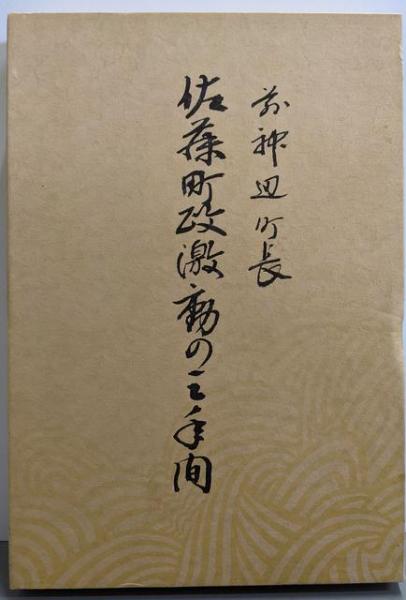 前神辺町長
佐藤町政激動の三年間